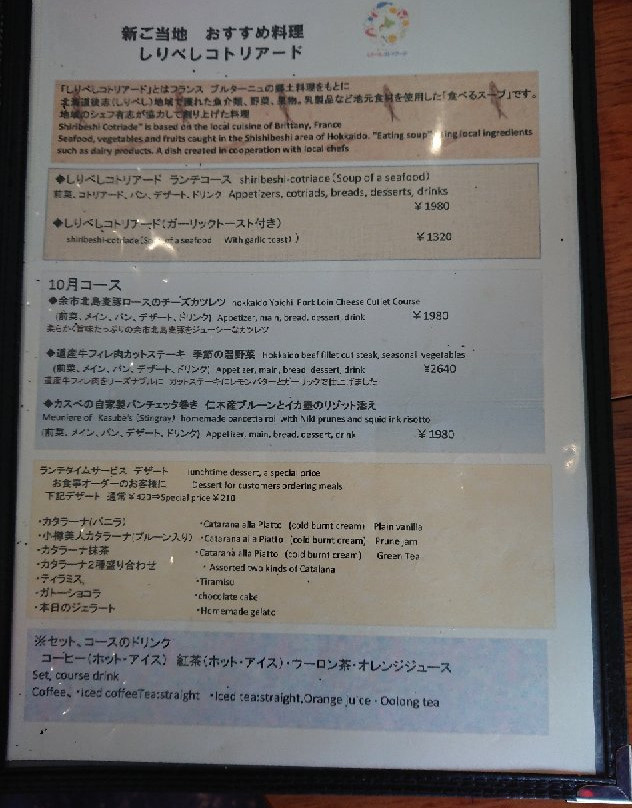 新ご当地　おすすめ料理
しりべしコトリアード
「しりべしコトリアード」とはフランス　ブルターニュの郷土料理をもとに
北海道後志(しりべし)地域で獲れた魚介類、野菜、果物、乳製品など地元食材を使用した「食べるスープ」です。
地域のシェフ有志が協力して創り上げた料理
Shiribeshi Cotriade" is based on the local cuisine of Brittany, France
Seafood, vegetables and fruits caught in the Shishiboshi area of Hokkaido. "Eating soup" using local ingredients
such as dairy products. A dish created in cooperation with local chefs
◆しりべしコトリアード　ランチコース　shiribeshi-cotriade(Soup of a seafood)
前菜、コトリアード、パン、デザート、ドリンク　Appetizers, cotriads, breads, desserts, drinks
￥1980
◆しりべしコトリアード(ガーリックトースト付き)
shiribeshi-cotriade(Soup of a seafood　With garlic toast))　￥1320
10月コース
◆余市北島麦豚ロースのチーズカツレツ　hokkaido Yoichi Pork Loin Cheese Cutlet Course
(前菜、メイン、パン、デザート、ドリンク) Appetizer, main, bread, dessert, drink　￥1980
柔らかく旨味たっぷりの余市北島麦豚をジューシーなカツレツ
◆道産牛フィレ肉カットステーキ　季節の温野菜　Hokkaido beef fillet cut steak, seasonal vegetables
(前菜、メイン、パン、デザート、ドリンク) Appetizer, main, bread, dessert, drink　¥2640
道産牛フィレ肉をリーズナブルに　カットステーキにレモンバターとガーリックで仕上げました
◆カスベの自家製パンチェッタ巻き　仁木産プルーンとイカ墨のリゾット添え
Meuniere of Kasube's (Stingray) homemade pancetta roll with Niki prunes and squid ink risotto
(前菜、メイン、パン、デザート、ドリンク) Appetizer, main, bread, dessert, drink　￥1980
ランチタイムサービス　デザート　lunchtime dessert, a special price
お食事オーダーのお客様に　Dessert for customers ordering meals
下記デザート　通常￥420⇒Special price￥210
・カタラーナ(バニラ)　・Catarana alla Piatto (cold burnt cream)　Plain vanilla
・小樽美人カタラーナ(プルーン入り)　・Catarana alla Piatto (cold burnt cream)　Prune jam
・カタラーナ抹茶　・Catarana alla Piatto (cold burnt cream)　Green Tea
・カタラーナ2種盛り合わせ　・Assorted two kinds of Catalana
・ティラミス　・Tiramisu
・ガトーショコラ　・chocolate cake
・本日のジェラート　・Homemade gelato
※セット、コースのドリンク
コーヒー(ホット・アイス)　紅茶(ホット・アイス)・ウーロン茶・オレンジジュース
Set, course drink
Coffee、・iced coffeeTea:straight　・Iced tea:straight,Orange juice・Oolong tea